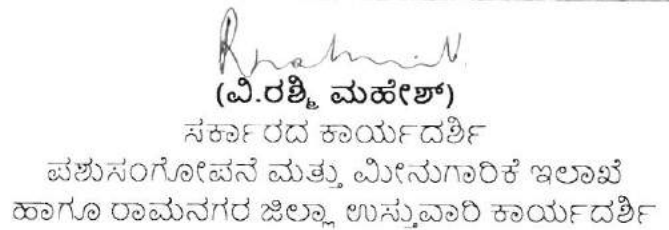 (ವಿ.ರಶ್ಮಿ ಮಹೇಶ್)
ಸರ್ಕಾರದ ಕಾರ್ಯದರ್ಶಿ
ಪಶುಸಂಗೋಪನೆ ಮತ್ತು ಮೀನುಗಾರಿಕೆ ಇಲಾಖೆ
ಹಾಗೂ ರಾಮನಗರ ಜಿಲ್ಲಾ ಉಸ್ತುವಾರಿ ಕಾರ್ಯದರ್ಶಿ